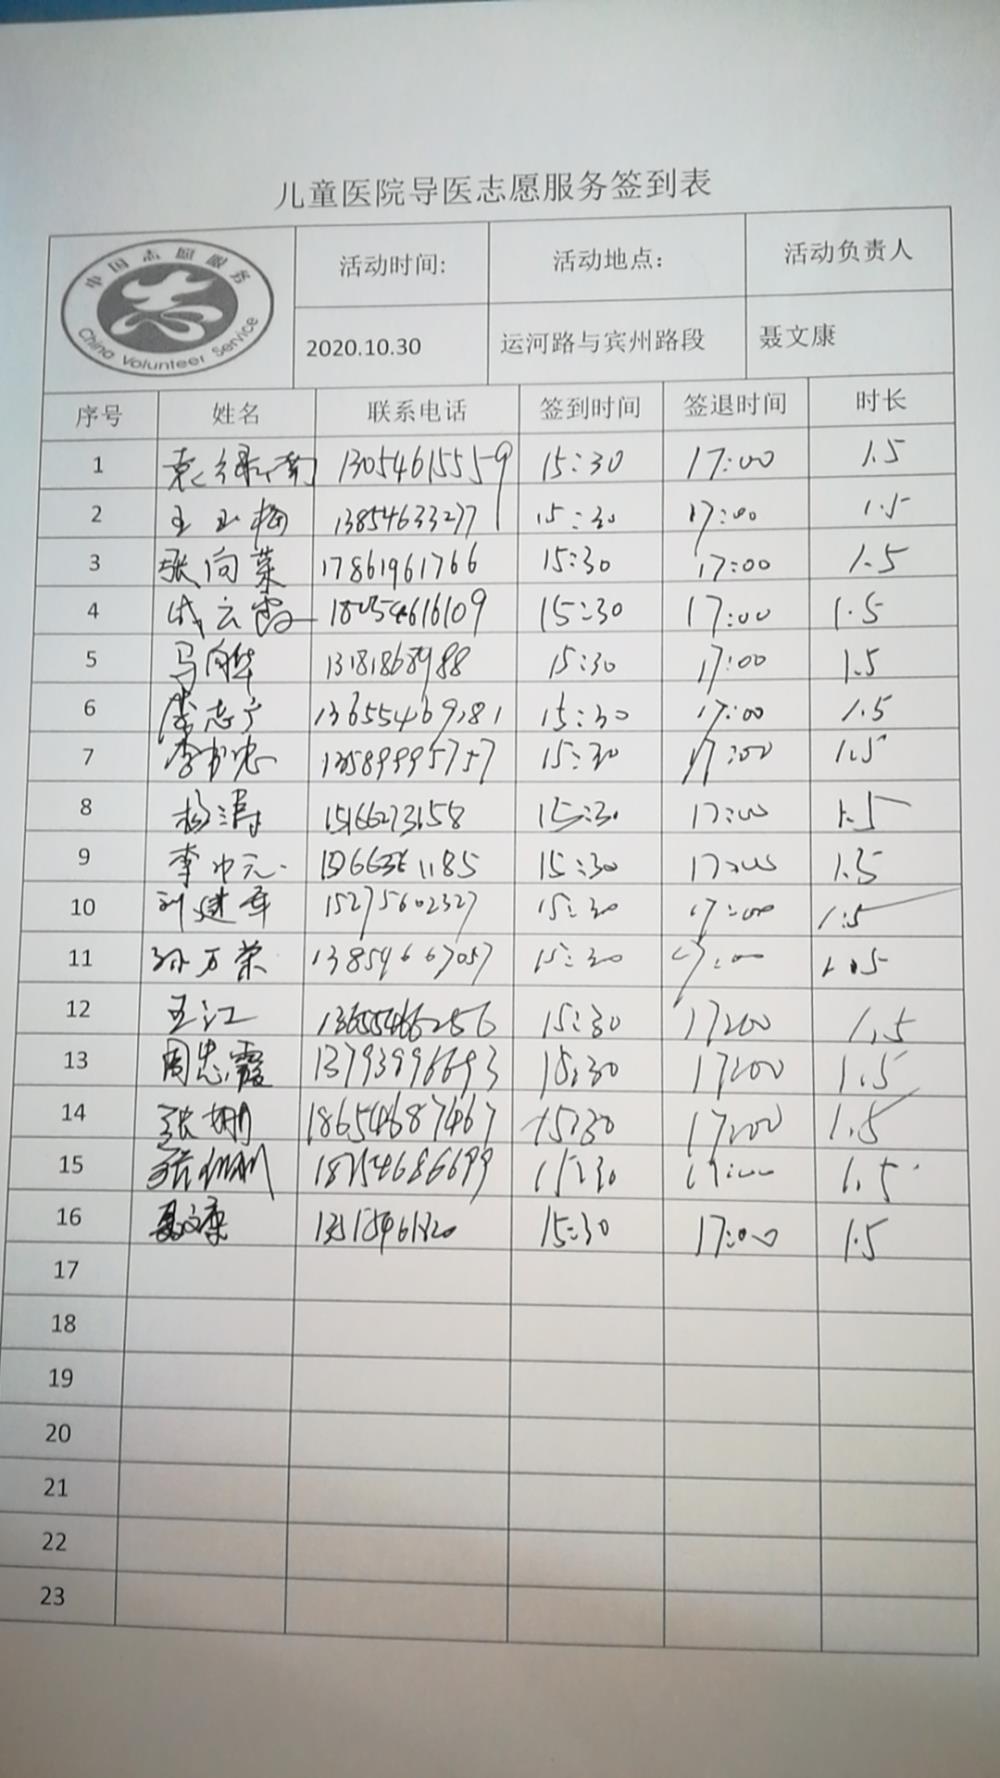 儿童医院导医志愿服务签到表
中国志愿服务
China Volunteer Service
活动时间: 活动地点： 活动负责人
2020.10.30 运河路与宾州路段 聂文康
序号 姓名 联系电话 签到时间 签退时间 时长
1 13054615559 15:30 17:00 1.5
2 王玉梅 13854633277 15:30 17:00 1.5
3 张向荣 17861961766 15:30 17:00 1.5
4 18054616109 15:30 17:00 1.5
5 马向华 13181868988 15:30 17:00 1.5
6 13655469181 15:30 17:00 1.5
7 15:30 17:00 1.5
8 杨涛 15166273158 15:30 17:00 1.5
9 李中元 15:30 17:00 1.5
10 刘建军 15275602327 15:30 17:00 1.5
11 孙万荣 13854667057 15:30 17:00 1.5
12 王江 13655466256 15:30 17:00 1.5
13 周忠霞 13793996693 15:30 17:00 1.5
14 张姗 18654687467 15:30 17:00 1.5
15 15:30 17:00 1.5
16 聂文康 15:30 17:00 1.5
17
18
19
20
21
22
23